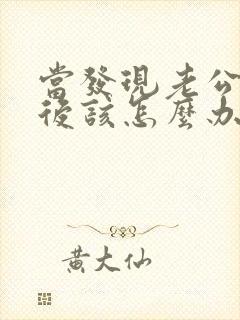 當發現老公
後該怎麼办
黃大仙